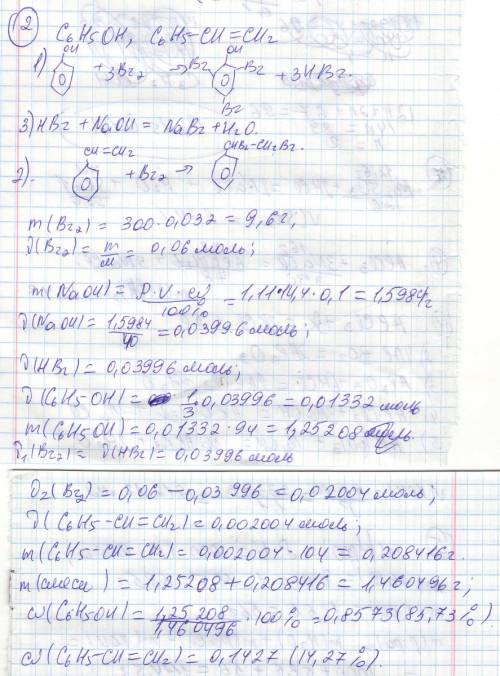 12
C6H5OH, C6H5-CH=CH2
1) OH +3Br2 → OH Br Br Br +3HBr.
3) HBr + NaOH = NaBr + H2O.
2). CH=CH2 +Br2 → CHBr-CH2Br.
m(Br2) = 300·0,032 = 9,6г,
ν(Br2) = m/M = 0,06 моль;
m(NaOH) = ρ·V·ω/100% = 1,11·14,4·0,1 = 1,5984г
ν(NaOH) = 1,5984/40 = 0,03996 моль;
ν(HBr) = 0,03996 моль;
ν(C6H5-OH) = 1/3·0,03996 = 0,01332 моль
m(C6H5OH) = 0,01332·94 = 1,25208
ν1(Br2) = ν(HBr) = 0,03996 моль
ν2(Br2) = 0,06 - 0,03996 = 0,02004 моль;
ν(C6H5-CH=CH2) = 0,002004 моль;
m(C6H5-CH=CH2) = 0,002004·104 = 0,208416г.
m(смеси) = 1,25208 + 0,208416 = 1,460496г;
ω(C6H5OH) = 1,25208/1,460496·100% = 0,8573 (85,73%).
ω(C6H5-CH=CH2) = 0,1427 (14,27%).